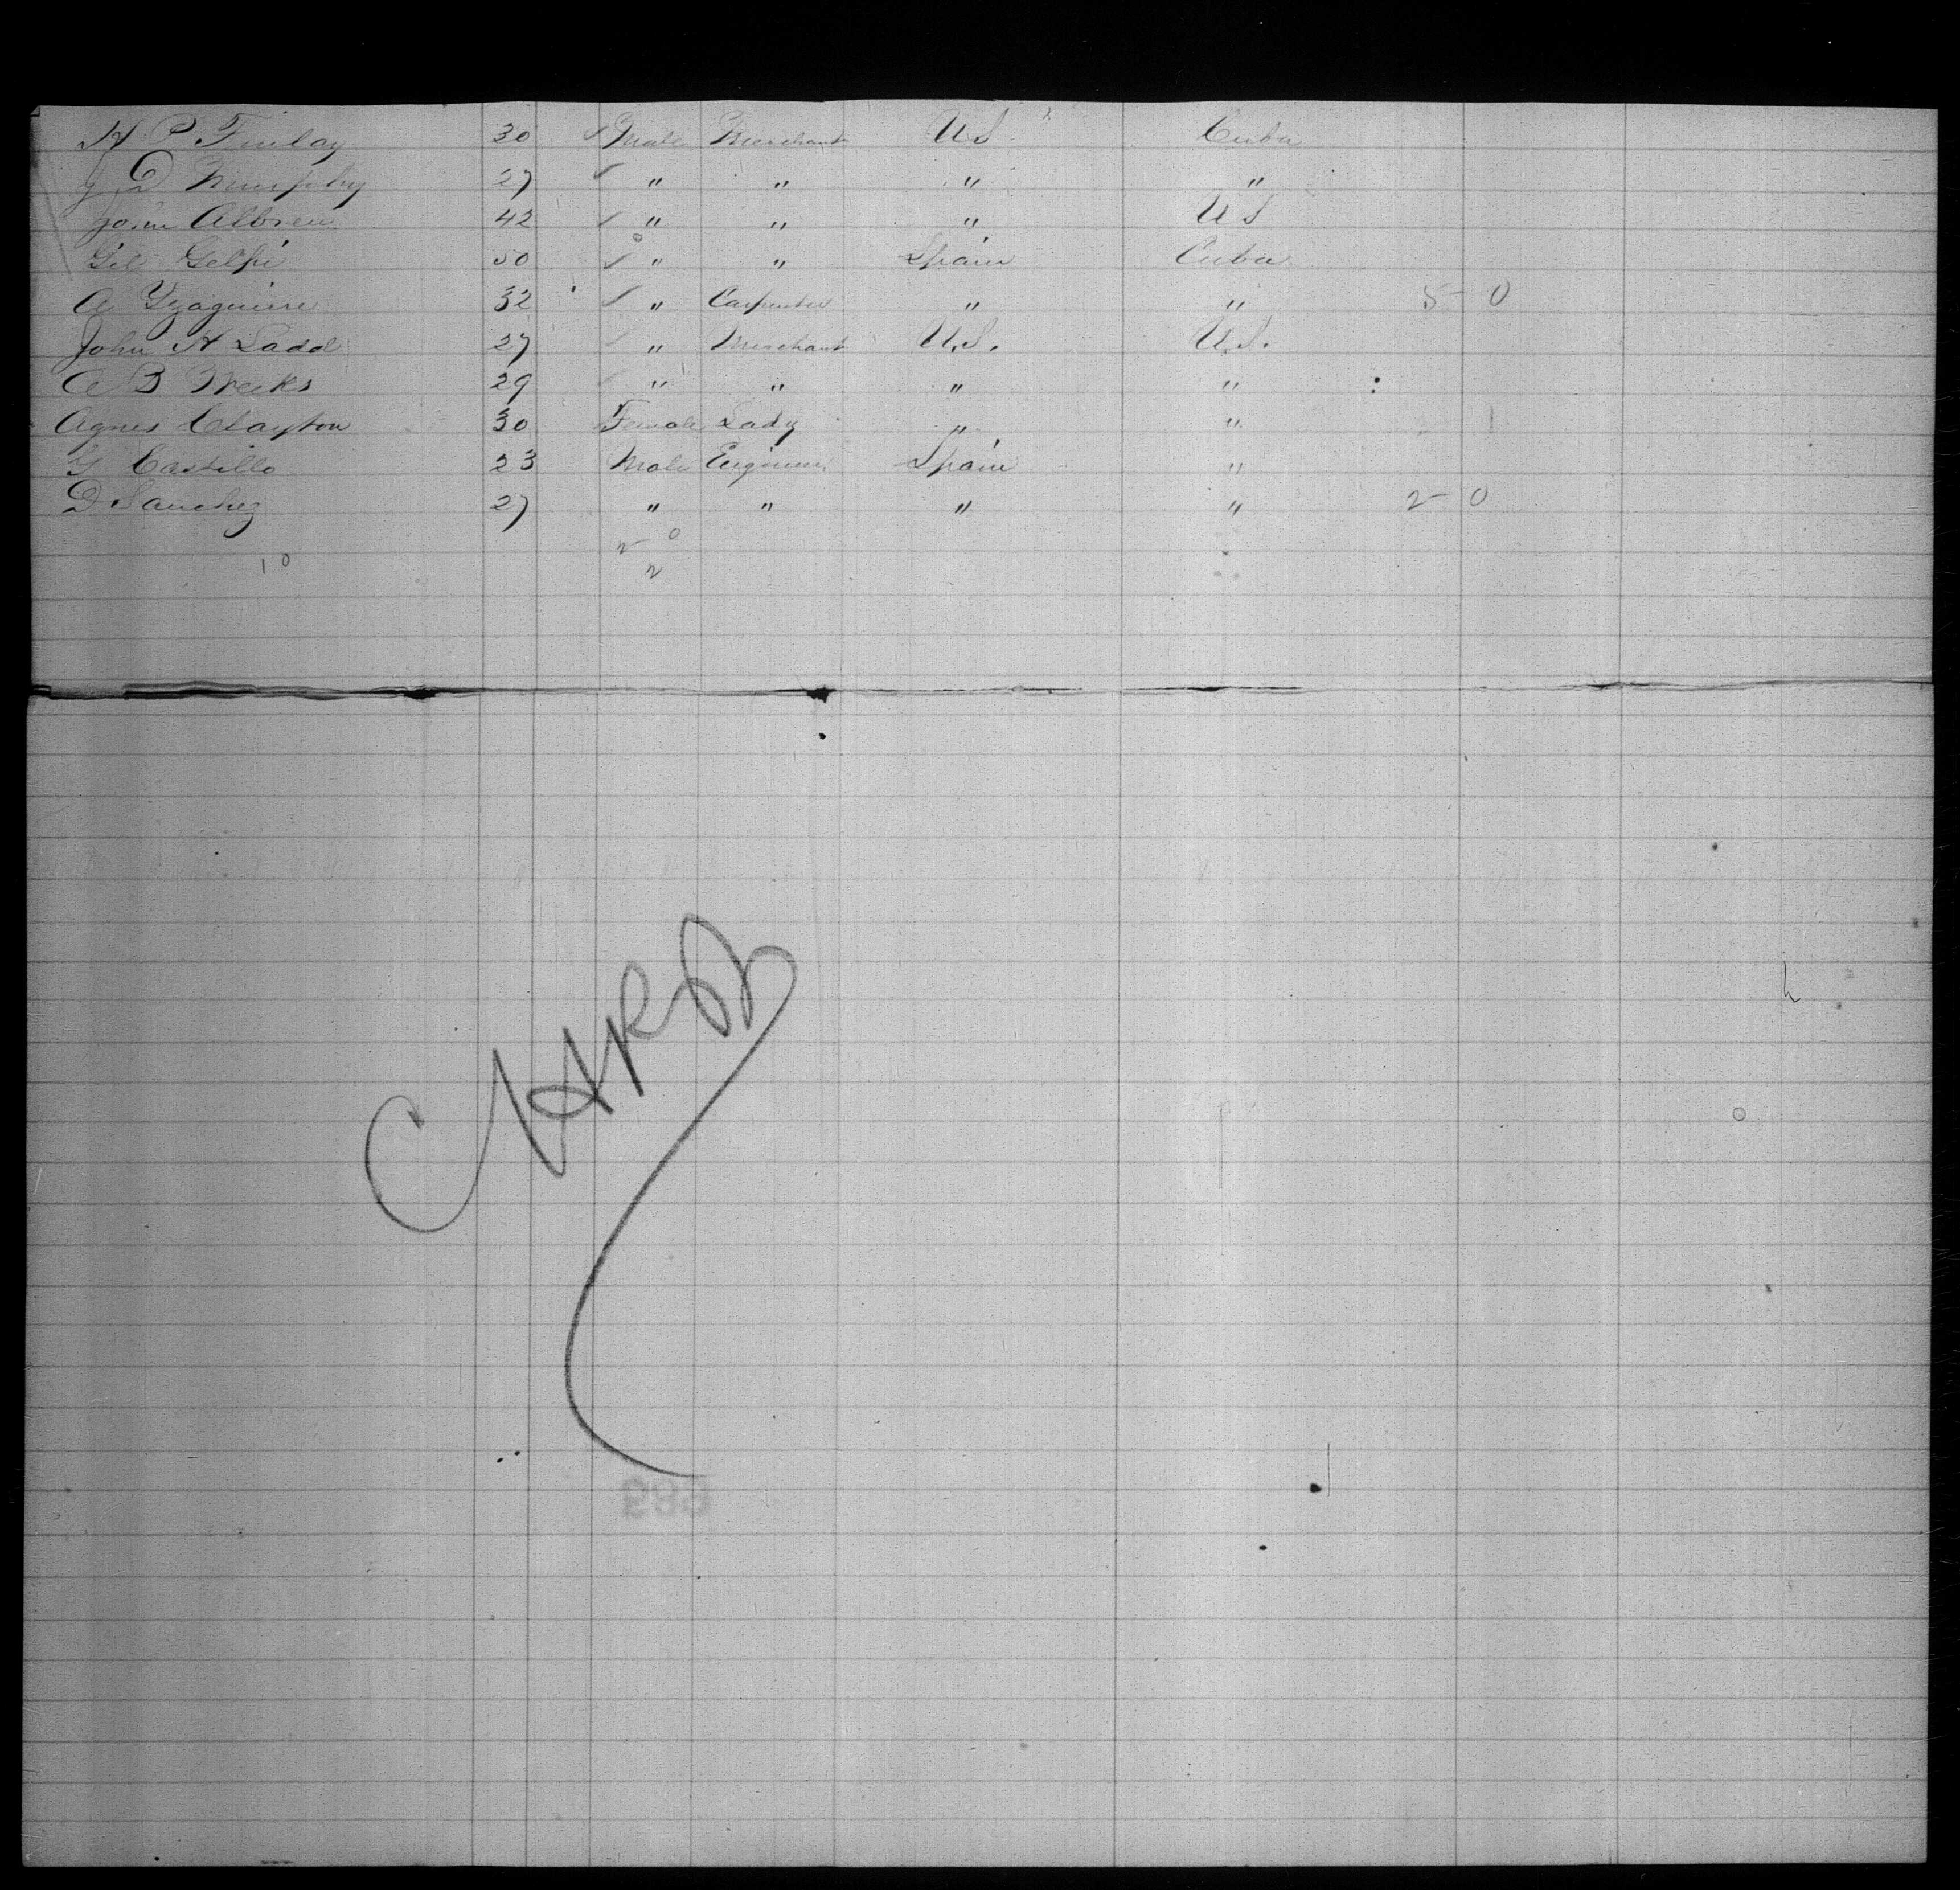 H P Finlay 30 Male Merchant US Cuba
J D Murphy 27 " " " "
John Albreu 42 " " " US
Gil Gelpi 50 " " Spain Cuba
A Yzaguirre 32 " Carpenter " " 5 0
John H Ladd 27 " Merchant U.S. U.S.
A B Weeks 29 " " " "
Agnes Clayton 30 Female Lady " "
Castillo 23 Male Engineer Spain "
D Sanchez 27 " " " " 2 0
2 0
10 2
CARD